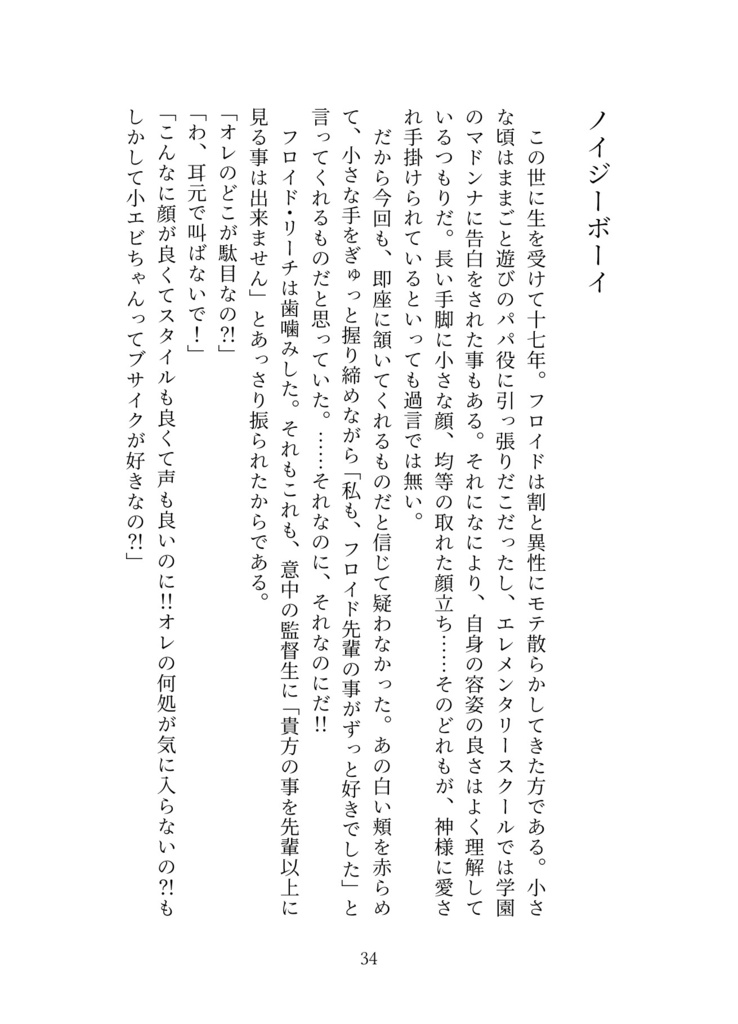 ノイジーボーイ
この世に生を受けて十七年。フロイドは割と異性にモテ散らかしてきた方である。小さ
な頃はままごと遊びのパパ役に引っ張りだこだったし、エレメンタリースクールでは学園
のマドンナに告白をされた事もある。それになにより、自身の容姿の良さはよく理解して
いるつもりだ。長い手脚に小さな顔、均等の取れた顔立ち……そのどれもが、神様に愛さ
れ手掛けられているといっても過言では無い。
だから今回も、即座に頷いてくれるものだと信じて疑わなかった。あの白い頬を赤らめ
て、小さな手をぎゅっと握り締めながら「私も、フロイド先輩の事がずっと好きでした」と
言ってくれるものだと思っていた。……それなのに、それなのにだ!!
フロイド・リーチは歯噛みした。それもこれも、意中の監督生に「貴方の事を先輩以上に
見る事は出来ません」とあっさり振られたからである。
「オレのどこが駄目なの?!」
「わ、耳元で叫ばないで！」
「こんなに顔が良くてスタイルも良くて声も良いのに!!オレの何処が気に入らないの?!も
しかして小エビちゃんってブサイクが好きなの?!」
34